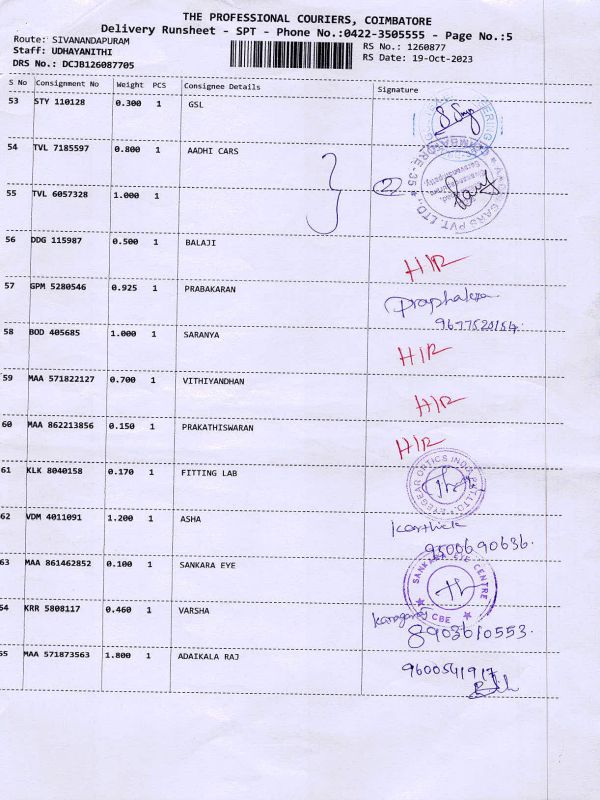 THE PROFESSIONAL COURIERS, COIMBATORE
Delivery Runsheet - SPT - Phone No.:0422-3505555 - Page No.:5
Route: SIVANANDAPURAM
Staff: UDHAYANITHI
DRS No.: DCJB126087705
RS No.: 1260877
RS Date: 19-Oct-2023
S No Consignment No Weight PCS Consignee Details Signature
53 STY 110128 0.300 1 GSL
54 TVL 7185597 0.800 1 AADHI CARS
55 TVL 6057328 1.000 1
2
56 DDG 115987 0.500 1 BALAJI H/R
57 GPM 5280546 0.925 1 PRABAKARAN
58 BOD 405685 1.000 1 SARANYA H/R
59 MAA 571822127 0.700 1 VITHIYANDHAN H/R
60 MAA 862213856 0.150 1 PRAKATHISWARAN H/R
61 KLK 8040158 0.170 1 FITTING LAB
62 VDM 4011091 1.200 1 ASHA Karthick
9500690636.
63 MAA 861462852 0.100 1 SANKARA EYE
SANKARA EYE CENTRE
CBE
64 KRR 5808117 0.460 1 VARSHA
8903610553.
65 MAA 571873563 1.800 1 ADAIKALA RAJ
9600541917